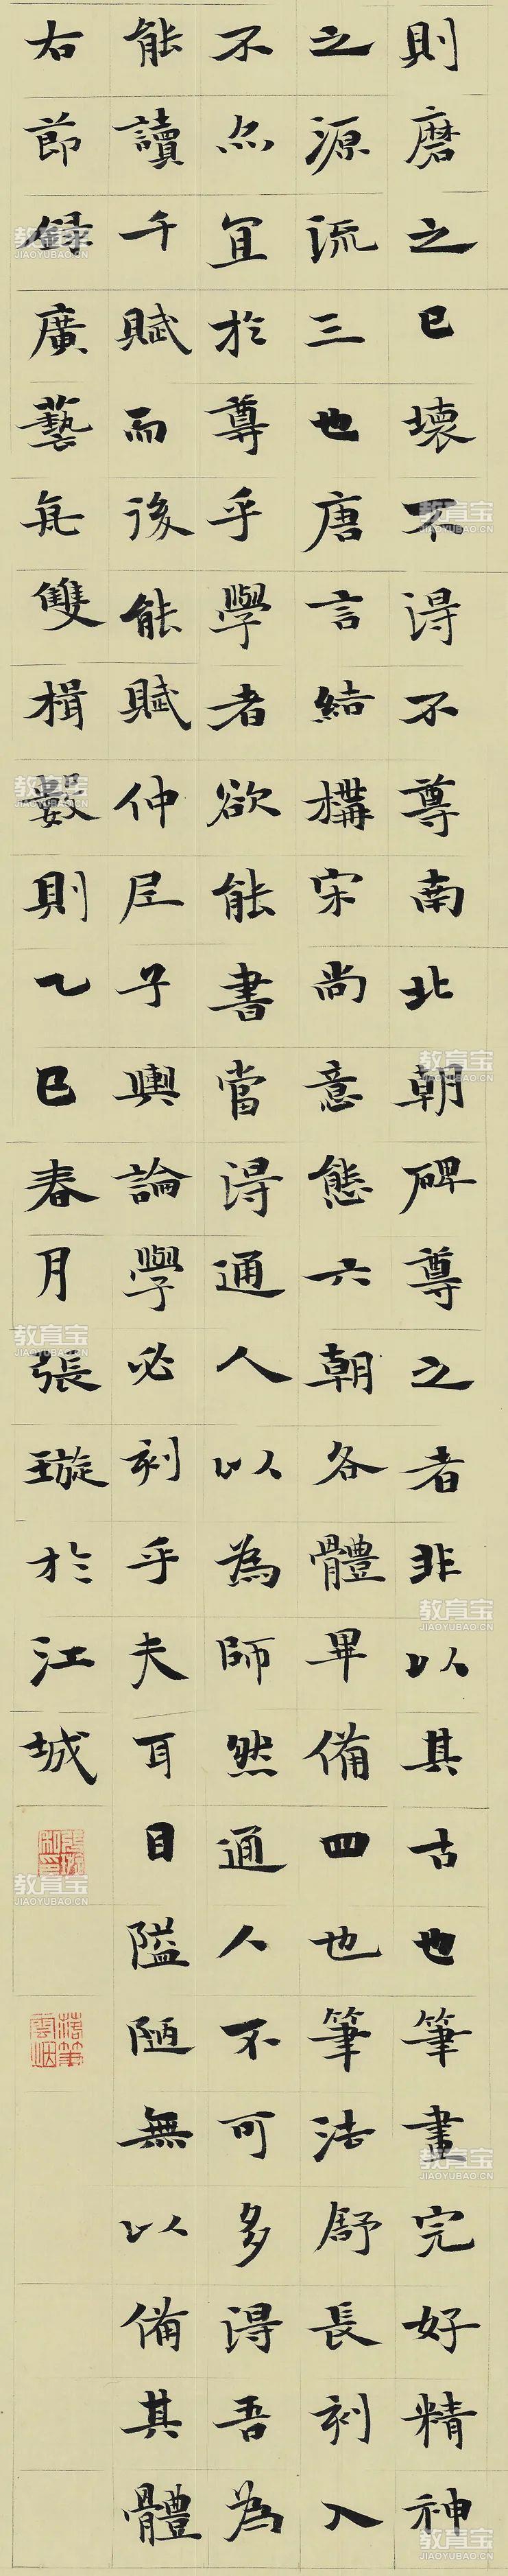 則磨之已壞不得不尊南北朝碑尊之者非以其古也筆畫完好精神
之源流三也唐言結構宋尚意態六朝各體畢備四也筆法舒長刻入
不亦宜於尊乎學者欲能書當得通人以為師然通人不可多得吾為
能讀千賦而後能賦仲尼子輿論學必刻乎夫耳目隘陋無以備其體
右節錄廣藝舟雙楫數則乙巳春月張璇於江城
落筆雲烟
教育宝
JIAOYUBAO.CN